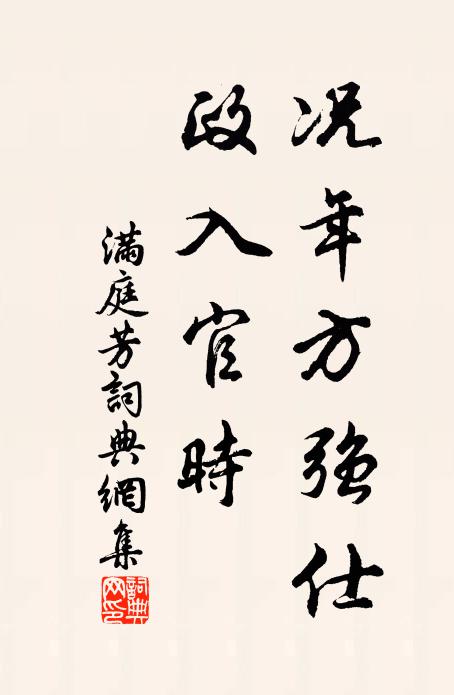 况年方强仕
政入官時
滿庭芳詞典網集
詞典網印